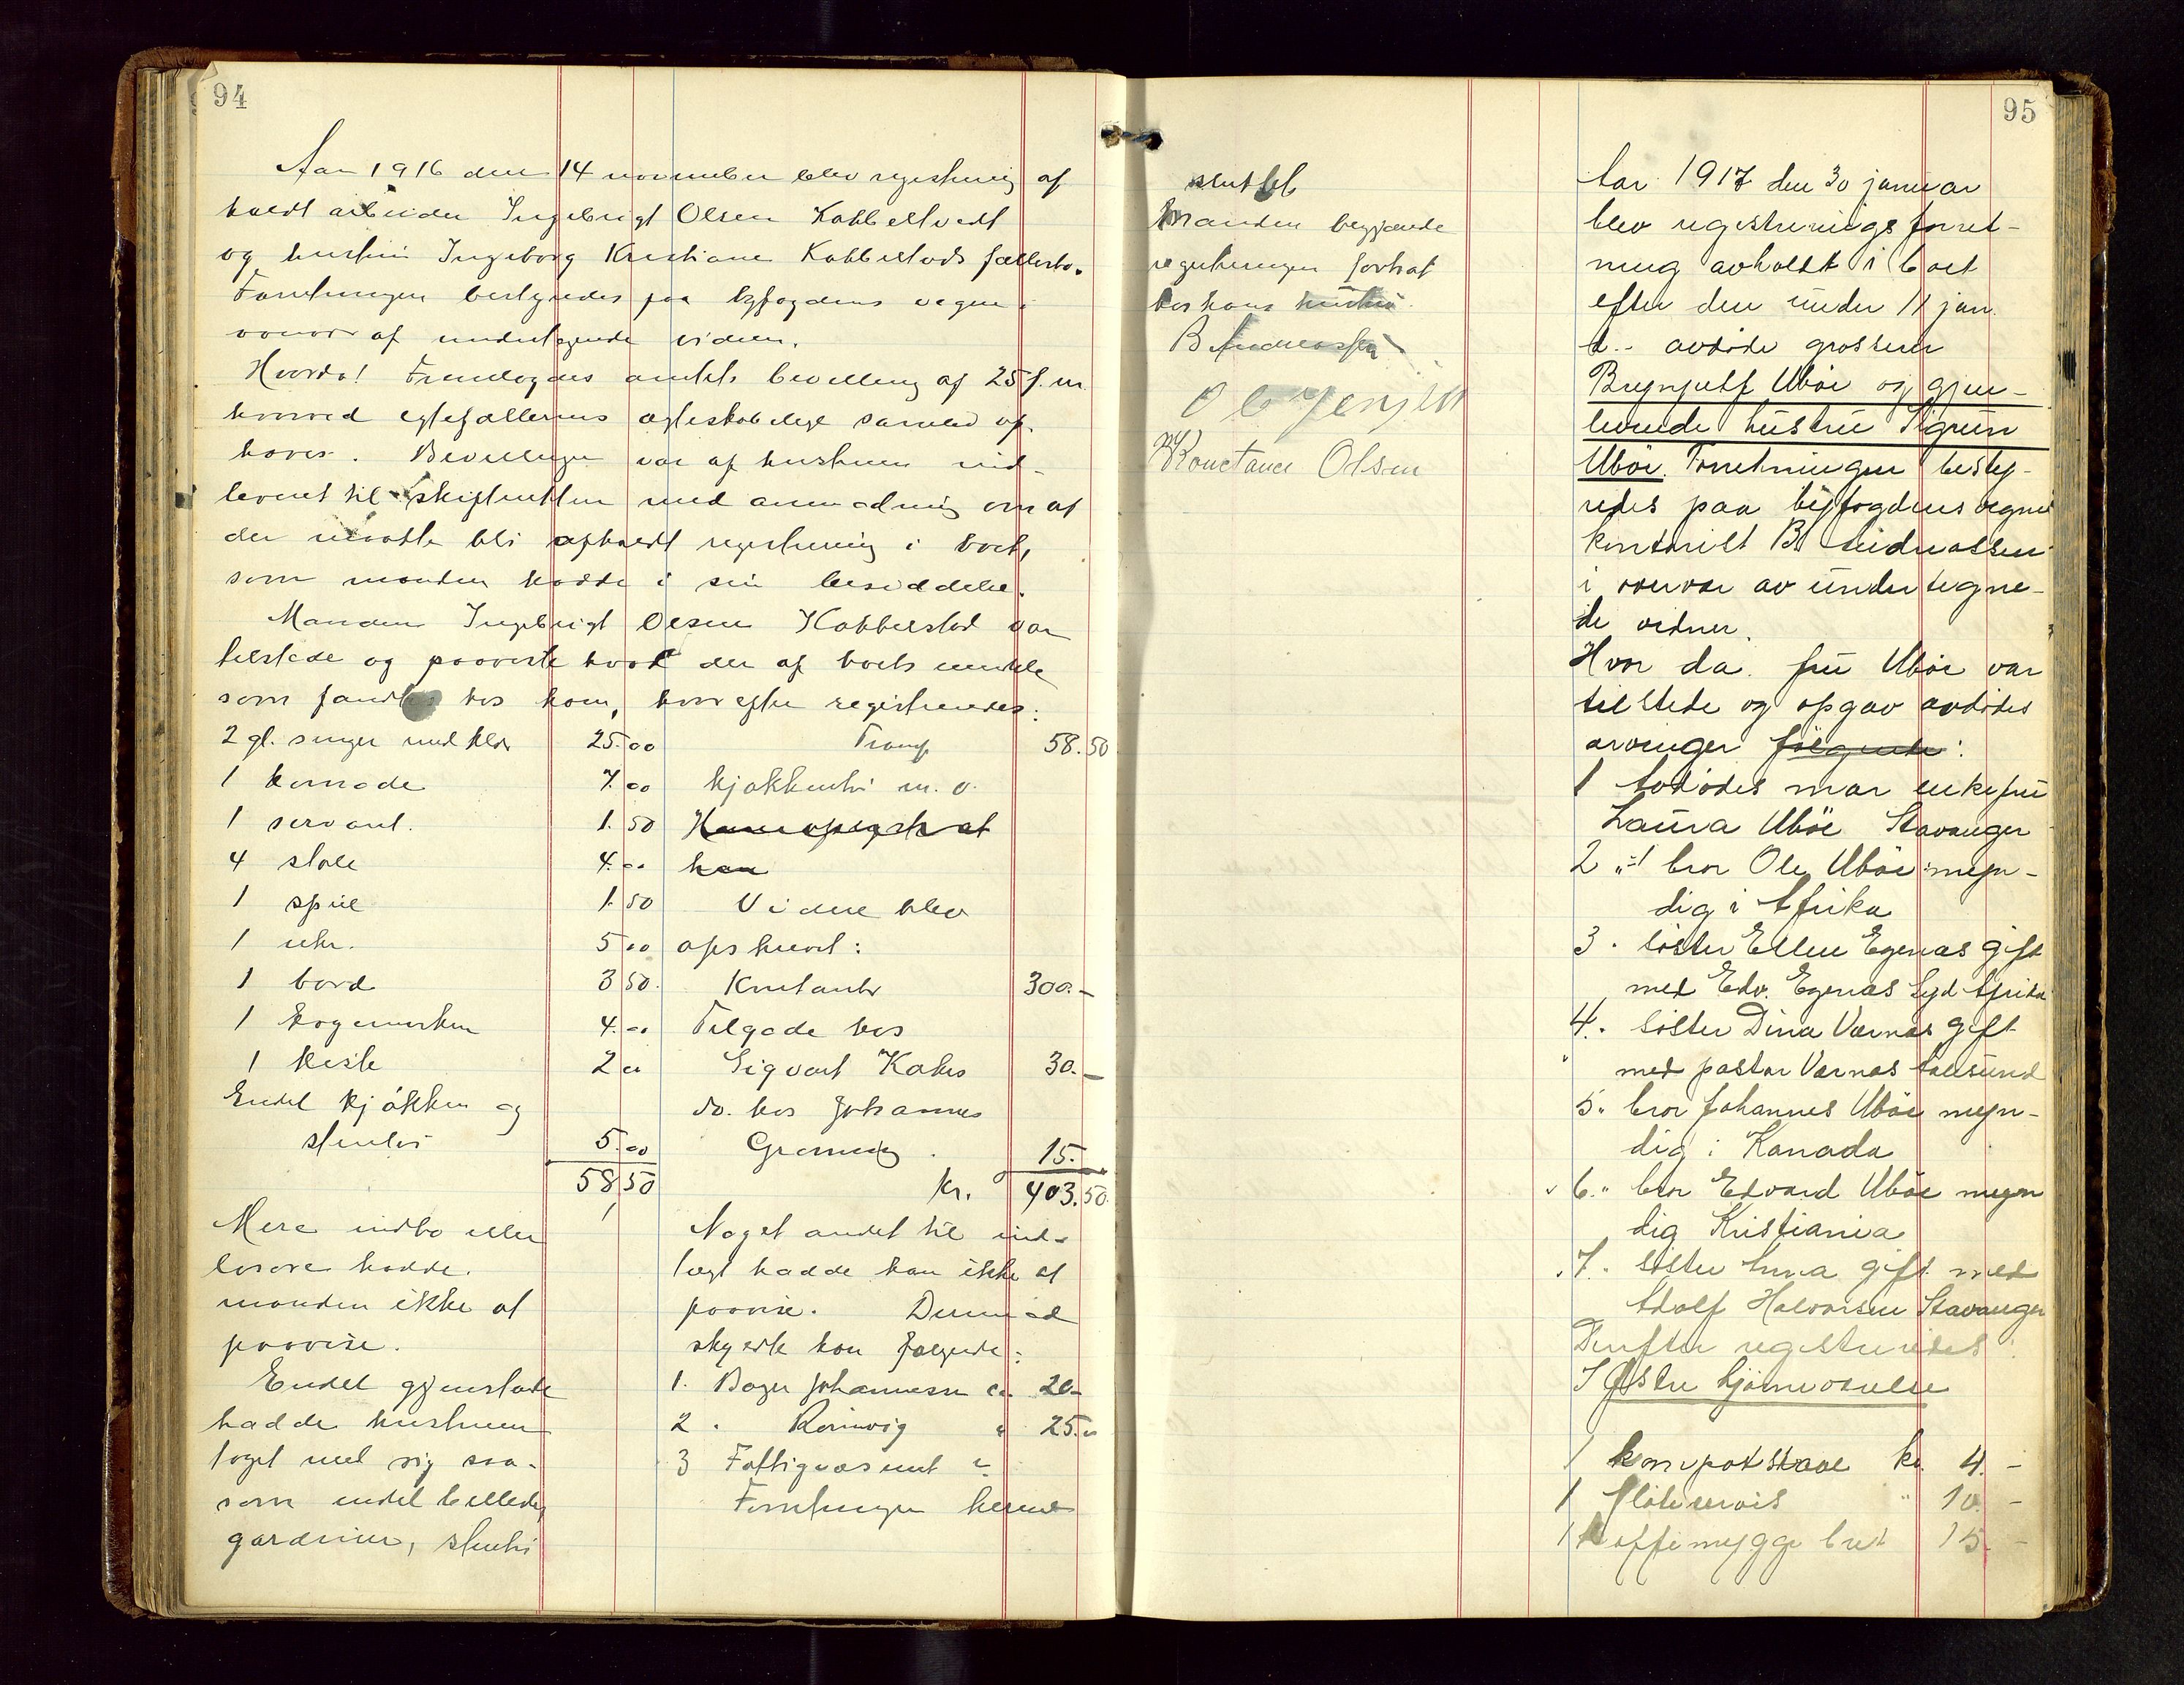 94
Aar 1916 den 14 november blev registrering af
holdt arbeider Ingebrigt Olsen Kobbeltvedt
og hustru Ingeborg Kristiane Kobbelstads fællesbo.
Forretningen bestyredes paa byfogdens vegne i
overvær af undertegnede vidner.
Hvorda! Fremlagdes amtets bevilling af 25 f. m.
hvorved egtefællernes egteskabelige samliv op-
høver. Bevillingen var af hustruen ind-
leveret til skifteretten med anmodning om at
der maatte bli afholdt registrering i boet,
som manden hadde i sin besiddelse.
Manden Ingebrigt Olsen Kobbelstad var
tilstede og paaviste hvad der af boets midle
som fandtes hos ham, hvorefter registreredes:
2 gl. senger med klær 25.00
1 komode 7.00
1 servant. 1.50
4 stole 4.00
1 speil 1.50
1 uhr. 5 00
1 bord 3 50.
1 kogemaskin 4.00
1 kiste 2 00
Endel kjøkken og
stentøi 5.00
58 50
Mere indbo eller
løsøre hadde
manden ikke at
paavise.
Endel gjenstande
hadde hustruen
taget med sig saa-
som endel billeder,
gardiner, stentøi
Transp 58.50
kjøkkentøi m. v.
han
Videre blev
opskrevet:
Kontanter 300.-
Tilgode hos
Sigvart 30.-
do. hos Johannes
15.-
kr. 403.50
Noget andet til ind-
tægt hadde han ikke at
paavise. Derimod
skyldte han følgende:
1. Bager Johannesen ca 20-
2. " 25.-
3 Fattigvæsenet ?
Forretningen hermed
95
sluttet
Manden begjærede
registreringen fortsat
hos hans hustru
B Andreassen
O B Jensen
Konstance Olsen
Aar 1917 den 30 januar
blev registreringsforret-
ning avholdt i boet
efter den under 11 jan.
d.. avdøde grosserer
Brynjulf Ubøe og gjen-
levende hustru Sigrun
Ubøe. Forretningen besty-
redes paa byfogdens vegne
kontorist B. Andreassen
i overvær av undertegne-
de vidner.
Hvor da. fru Ubøe var
tilstede og opgav avdødes
arvinger følgende:
1 Avdødes mor enkefru
Laura Ubøe Stavanger
2 " bror Ole Ubøe myn-
dig i Afrika
3. søster Ellen Egenæs gift
med Edv. Egenæs Syd Afrika
4. søster Dina Værnæs gift
med pastor Værnæs Aalesund
5. bror Johannes Ubøe myn-
dig i Kanada
6. " bror Edvard Ubøe myn
dig Kristiania
7. søster Anna gift med
Adolf Halvorsen Stavanger
Derefter registreredes
I Østre hjørneværelse
1 kompotskaal kr. 4.-
1 fløteservis " 10.-
1 kaffemyggebret 15.-